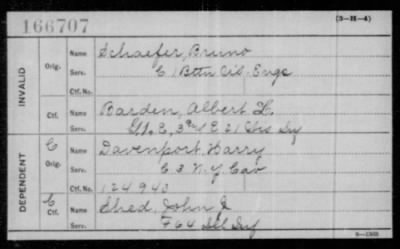 166707
(3-H-4)
INVALID
Orig.
Name Schaefer, Bruno
Serv. C 1 Bttn Cis. Engs
Ctf. No.
Ctf.
Name Barden, Albert H.
Serv. E, 3 E 21
DEPENDENT
C
Orig.
Name Davenport, Harry
Serv. C 3 N.Y. Cav
Ctf. No. 124940
C
Ctf.
Name Shed, John
Serv. F 64 Ill Inf